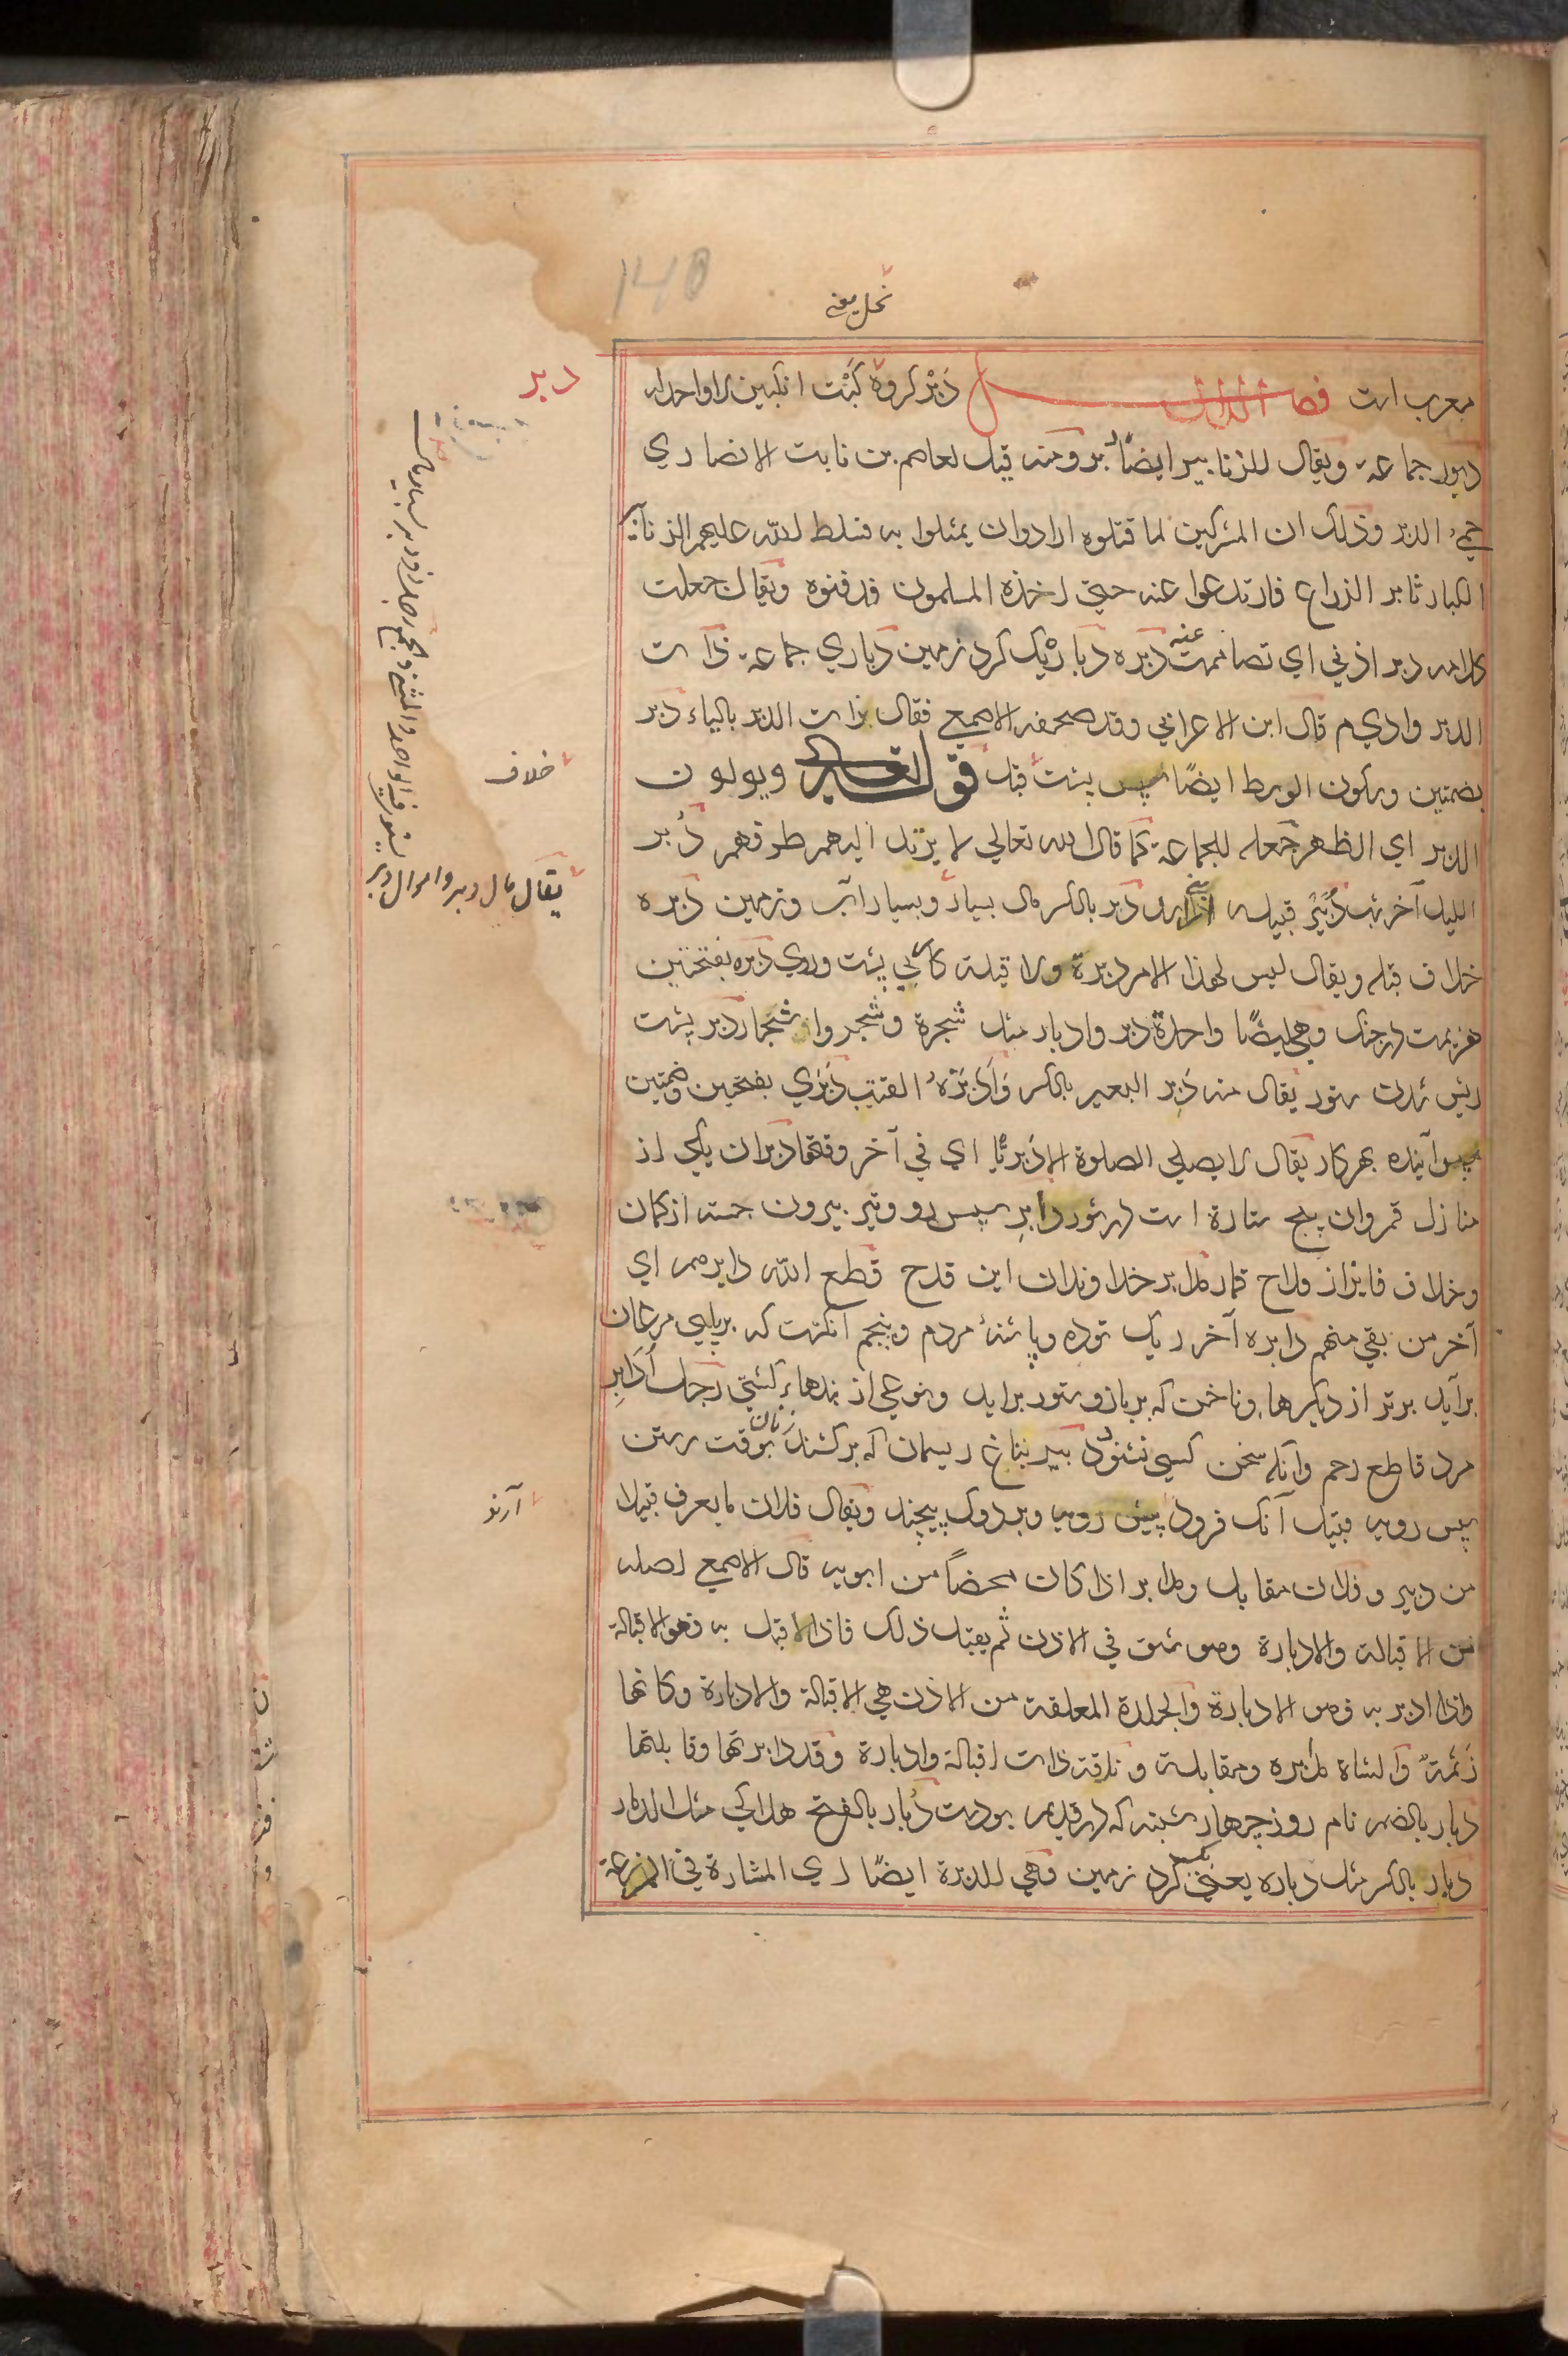 140
نحل یعنی
معرب است فصل الدال دَبْر کروهٔ کَبْت انکبین را واحد له
دبور جماعة ویقال للزنابیر ایضًا دبر ومنه قیل لعاصم بن ثابت الانصاري
حمي الدبر وذلک ان المشرکین لما قتلوه ارادوا ان یمثلوا به فسلط الله علیهم الزنابیر
الکبار تابر الذراع فارتدعوا عنه حتی اخذه المسلمون فدفنوه ویقال جعلت
کلامه دبر اذني اي تصاممت عنه دبره دبار یک کرد زمین دباري جماعة ذات
الدبر وادي م قال ابن الاعرابي وقد صحفه الاصمعي فقال ذات الدیر بالیاء دبر
بضمتین وسکون الوسط ایضًا سپس پشت قبل قوله تعالی ویولون
الدبر اي الظهر جعله للجماعة کما قال الله تعالی لا یرتد الیهم طرفهم دُبر
اللیل آخر شب دُبَیْر قبیله از اسد دبر بالکسر مال بسیار وبسیار آب وزمین دَبره
خلاف قبله ویقال لیس لهذا الامر دبرة ولا قبلة کار بي پشت وروي دبره بفتحتین
هزیمت در جنک وهي ایضًا واحدة دبر وادبار مثل شجرة وشجر واشجار دبر پشت
ریش شدن ستور یقال منه دَبِر البعیر بالکسر وَاَدْبَرَهُ القتب دَبَري بفتحتین وضمتین
سپس آینده بهر کار یقال لا یصلي الصلوة الا دَبَریًّا اي في آخر وقتها دبران یکی از
منازل قمر وان پنج ستاره است در ثور دابر سپس رو وتیر بیرون جسته از کمان
وخلاف فایز از قداح قمار مدابر خداوندان این قدح قطع الله دابرهم اي
آخر من بقي منهم دابره آخر ریک توده وپاشنهٔ مردم وپنجم انکشت که برپای مرغان
برآید برتر از دیکرها وناخن که بر بازو ستور براید ونوعي از بندهاء کشتي رجل اُدابِر
مرد قاطع رحم وآنکه سخن کسي نشنود دبیر بناغ ریسمان که برکشند زنان بوقت رستن
سپس رویه قبیل آنک فرود پیش رویه وبر دوک پیچند ویقال فلان ما یعرف قبیلا
من دبیر وفلان مقابل ومدابر اذا کان محضاً من ابویه قال الاصمعي اصله
من الاقبالة والادبارة وهو شق في الاذن ثم یفتل ذلک فاذا اقبل به فهو الاقبالة
واذا ادبر به فهو الادبارة والجلدة المعلقة من الاذن هي الاقبالة والادبارة وکانها
زَنَمَةٌ والشاة مدابره ومقابلة وناقة ذات اقبالة وادبارة وقد دابرتها وقابلتها
دبار بالضم نام روز چهارشنبه که در قدیم بودست دَبار بالفتح هلاکي مثل الدمار
دبار بالکسر مثل دباره یعني کرد زمین وهي للدبرة ایضًا اي المشارة في المزرعة
دبر
خلاف
یقال مال دبر واموال دبر
یستوي فیه الواحد والمثنی والجمع
آرند